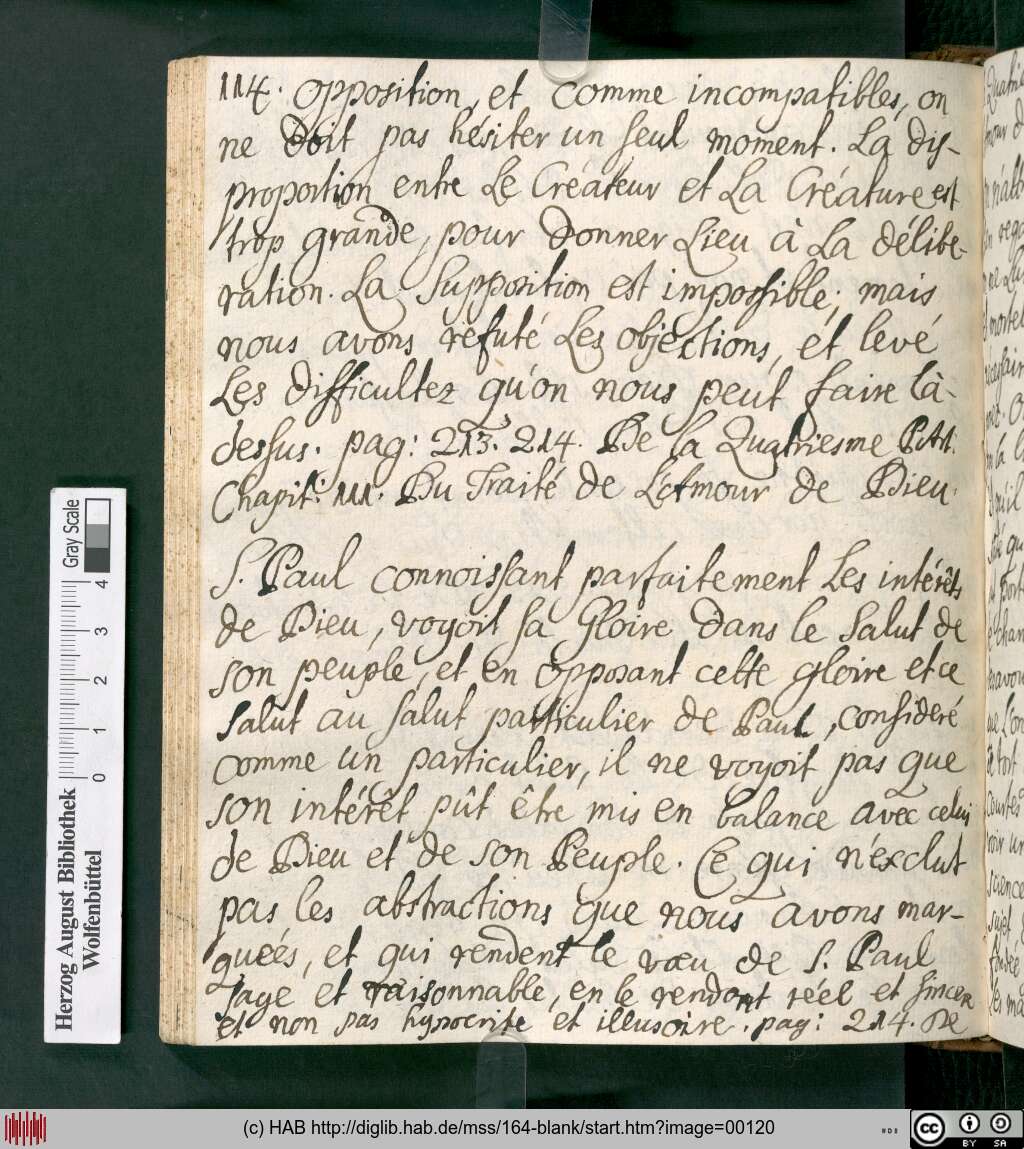 114. opposition, et comme incompatibles, on
ne doit pas hésiter un seul moment. La dis-
proportion entre Le Créateur et La Créature est
trop grande, pour donner Lieu à La délibe-
ration. La Supposition est impossible; mais
nous avons réfuté Les objections, et levé
Les difficultez qu'on nous peut faire là-
dessus. pag: 213. 214. De la Quatriesme Part.
Chapit: III. Du Traité de L'Amour de Dieu.
S. Paul connoissant parfaitement Les intérêts
de Dieu, voyoit sa Gloire dans le Salut de
son peuple, et en opposant cette gloire et ce
salut au salut particulier de Paul, consideré
comme un particulier, il ne voyoit pas que
son intérêt pût être mis en balance avec celui
de Dieu et de son Peuple. Ce qui n'exclut
pas les abstractions que nous avons mar-
queés, et qui rendent le vœu de S. Paul
sage et raisonnable, en le rendant réel et sincer
et non pas hypocrite et illusoire. pag: 214. De
Gray Scale
0 1 2 3 4
Herzog August Bibliothek
Wolfenbüttel
(c) HAB http://diglib.hab.de/mss/164-blank/start.htm?image=00120
cc BY SA